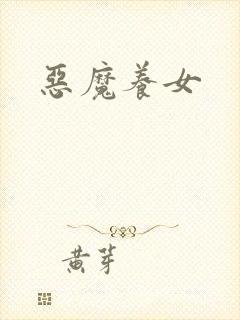 惡魔養女
黃芽